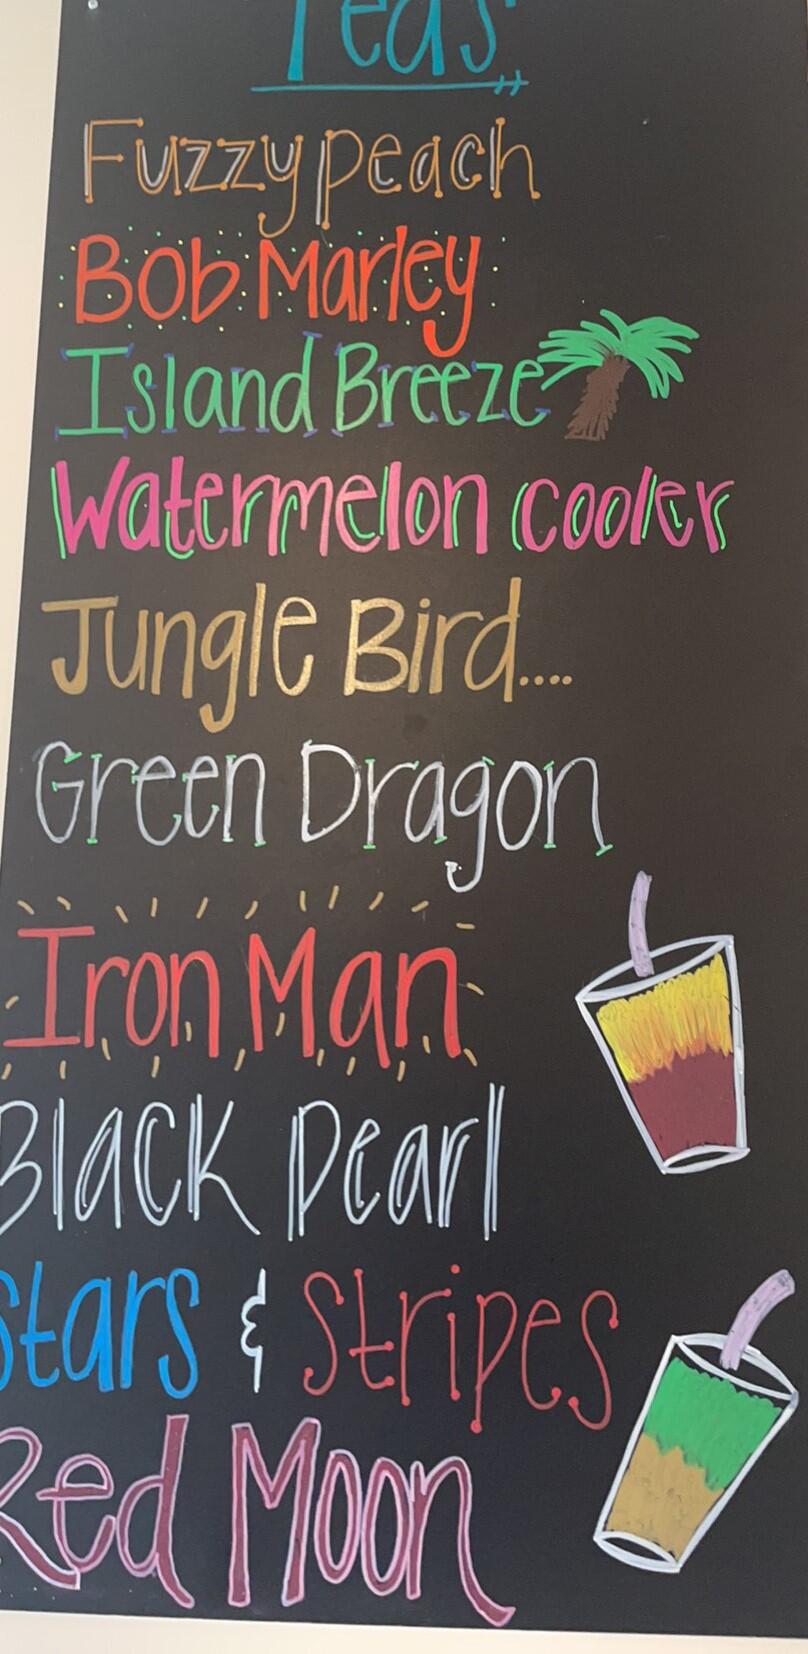 Teas
Fuzzy peach
Bob Marley
Island Breeze
Watermelon cooler
Jungle Bird....
Green Dragon
Iron Man
Black pearl
Stars & Stripes
Red Moon